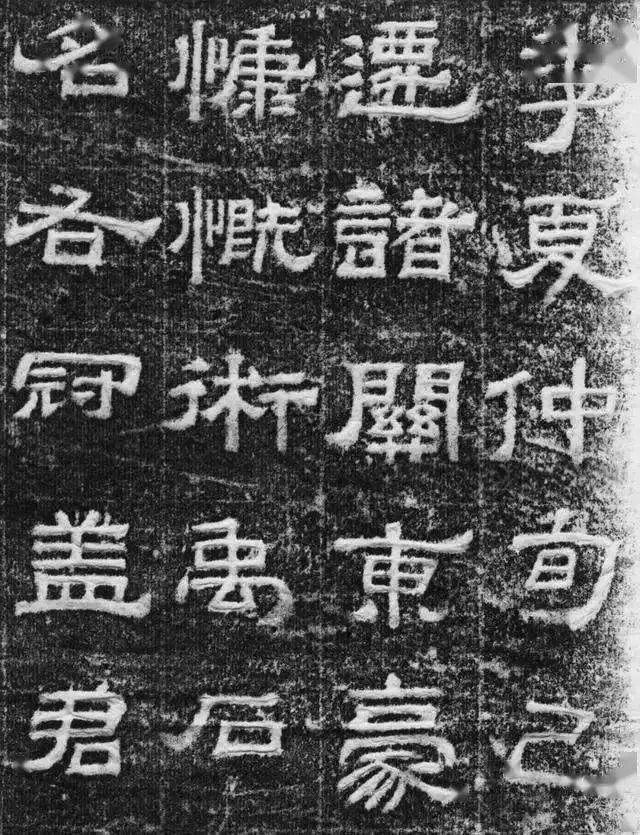 夏仲旬己
遷諸關東豪
慷慨術禹石
名各冠盖君